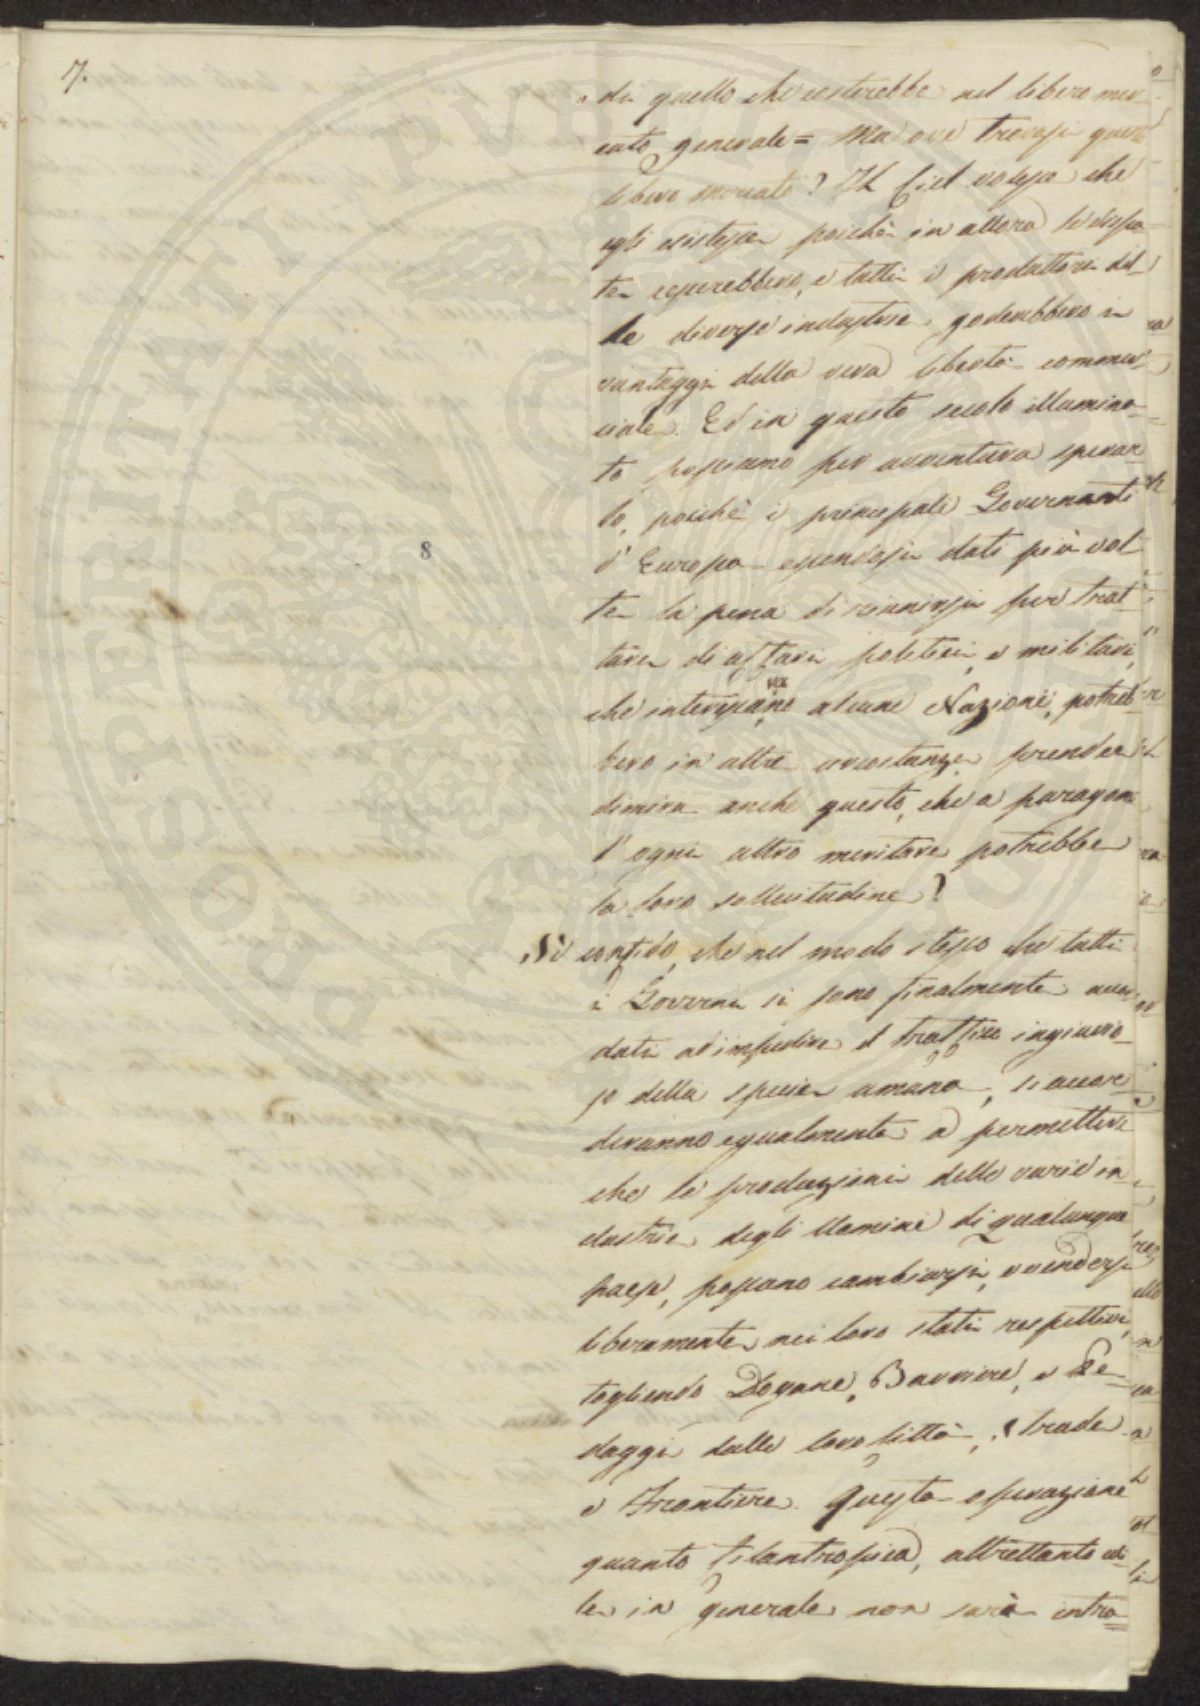 7.
di quello che costerebbe nel libero mer-
cato generale = Ma ove trovasi questo
libero mercato? Il Ciel volesse che
egli esistesse poiche in allora le dispu=
te cesserebbero, e tutti i produttori del-
le diverse industrie godrebbero i
vantaggi della vera libertà commer-
ciale. Ed in questo secolo illumina-
to possiamo per avventura sperar-
lo, poichè i principali Governanti
d'Europa essendosi dati più vol
te la pena di riunirsi per trat
tare di affari politici, e militari,
che interessano alcune Nazioni, potreb-
bero in altre circostanze prender
di mira anche questo, che a paragone
d'ogni altro meritare potrebbe
la loro sollecitudine?
Si confido, che nel modo istesso che tutti
i Governi si sono finalmente accor
dati ad impedire il traffico ingiurio-
so della specie umana, si accor
deranno egualmente a permettere
che le produzioni delle varie in
dustrie degli Uomini di qualunque
paese, possano cambiarsi, o vendersi
liberamente nei loro stati respettivi,
togliendo Dogane, Barriere, e Pe-
daggi dalle loro Città, Strade
e Frontiere. Questa operazione
quanto filantropica, altrettanto uti
le in generale non sarà intra=
8
PROSPERITATI PVBLICAE